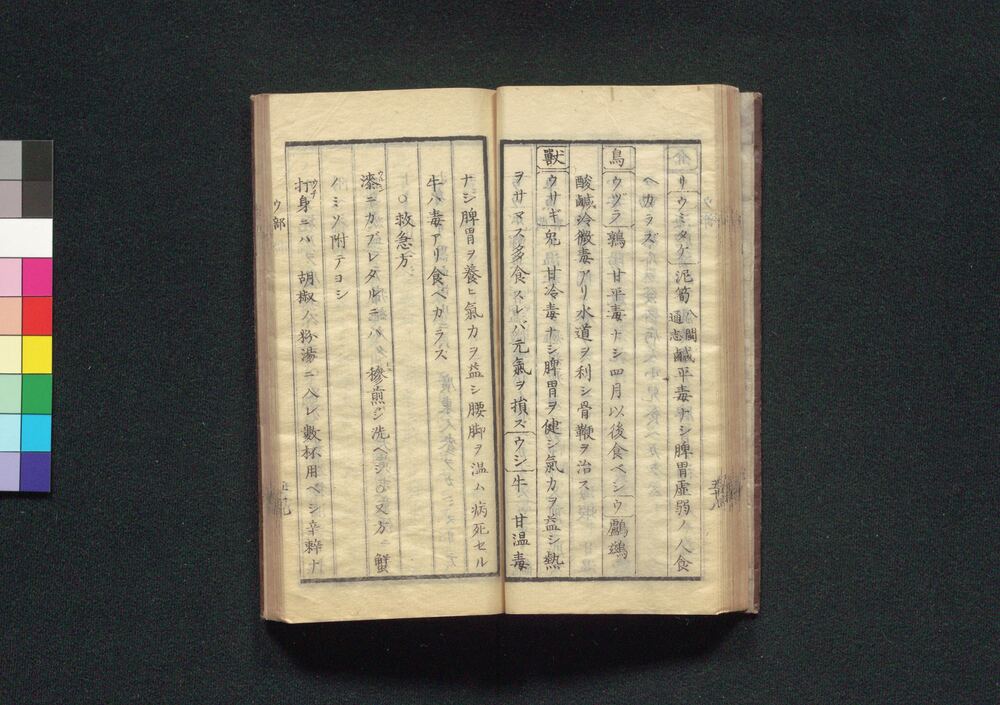 リウミタケ泥筍閩公通志鹹平毒ナシ脾胃虚弱ノ人食
ヘカラズ
鳥ウヅラ鶉甘平毒ナシ四月以後食ベシウ鸕鷀
酸鹹冷微毒アリ水道ヲ利シ骨鞕ヲ治ス
獣ウサギ兎甘冷毒ナシ脾胃ヲ健シ氣カヲ益シ熱
ヲサマス多食スレバ元氣ヲ損ズウシ牛甘温毒
ナシ脾胃ヲ養ヒ氣カヲ益シ腰脚ヲ温ム病死セル
牛ハ毒アリ食ベカラズ
○救急方
漆ニカブレタルニハ煎ジ洗ベシ又方ニ蟹
ノミソ附テヨシ
打身ニハ胡椒ノ粉湯ニ入レ數杯用ベシ辛辣ナ
ウ部